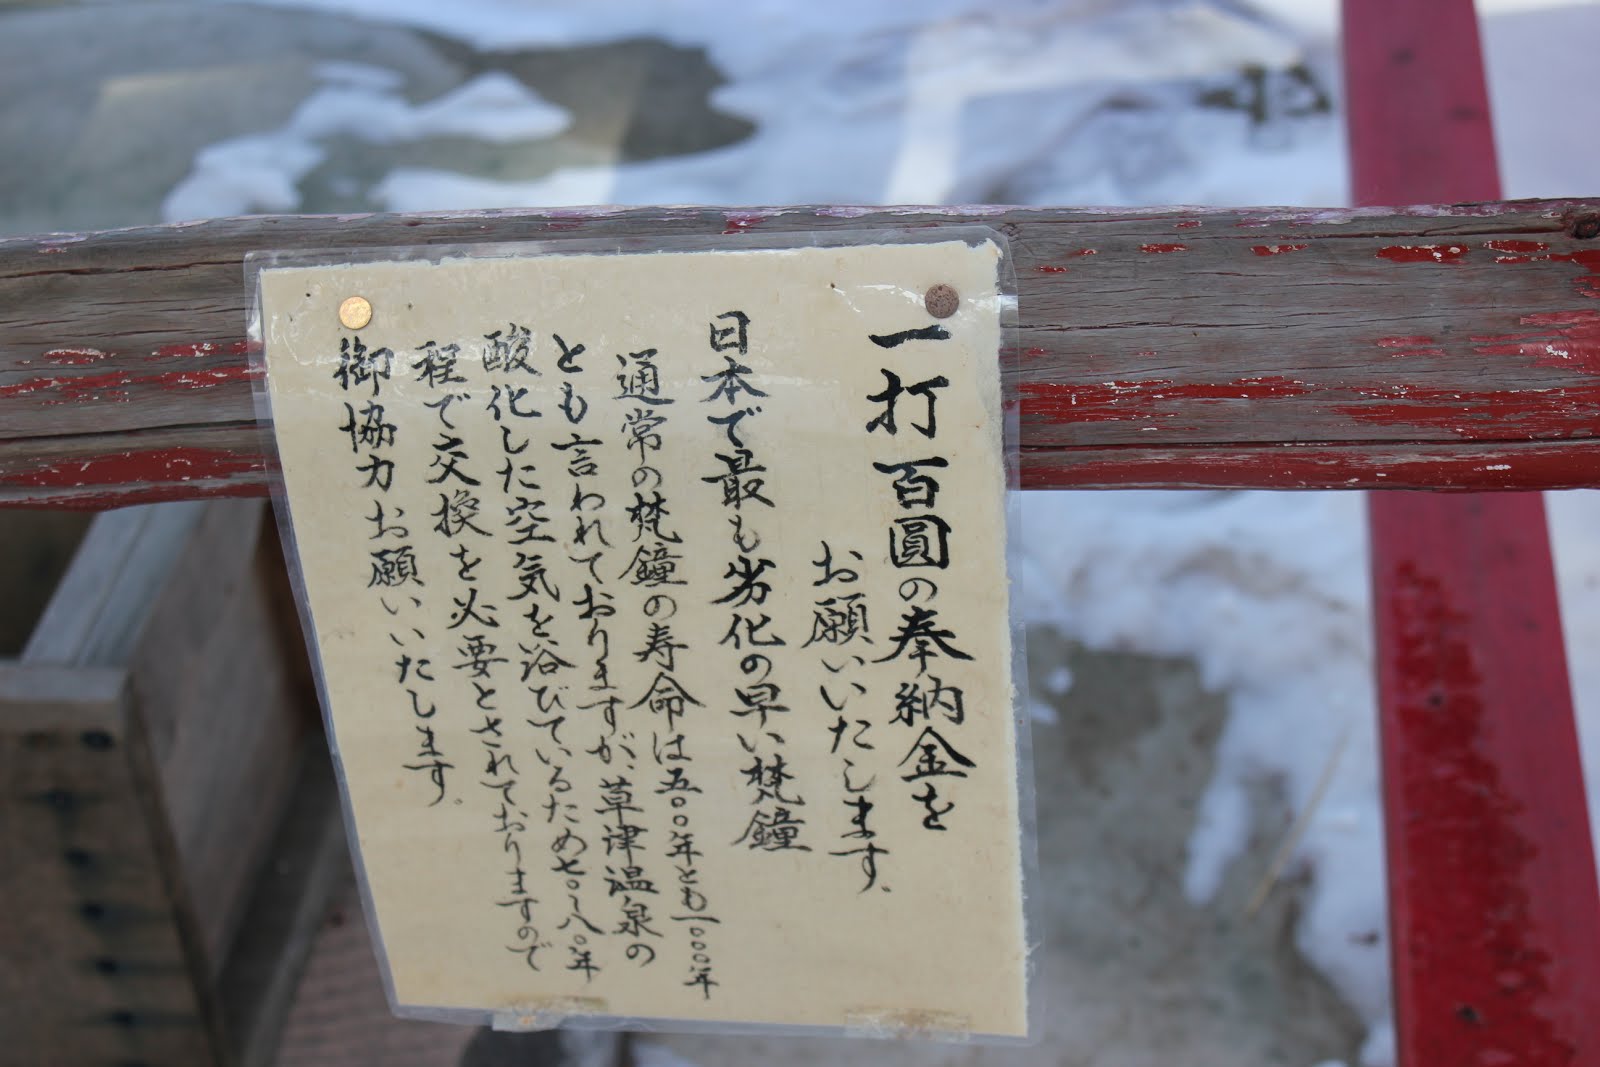 一打百圓の奉納金を
お願いいたします。
日本で最も劣化の早い梵鐘
通常の梵鐘の寿命は五〇〇年とも一〇〇〇年
とも言われておりますが、草津温泉の
酸化した空気を浴びているため七〇〜八〇年
程で交換を必要とされておりますので
御協力お願いいたします。